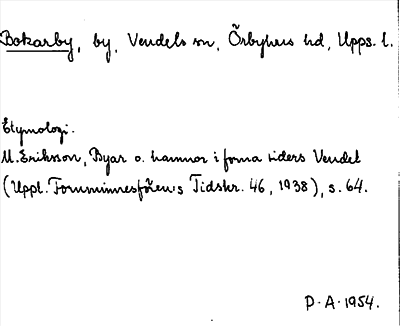 Bokarby, by, Vendels sn, Örbyhus hd, Upps. l.
Etymologi.
M. Eriksson, Byar o. hamnor i forna tiders Vendel
(Uppl. Fornminnesfören:s Tidskr. 46, 1938), s. 64.
P. A. 1954.